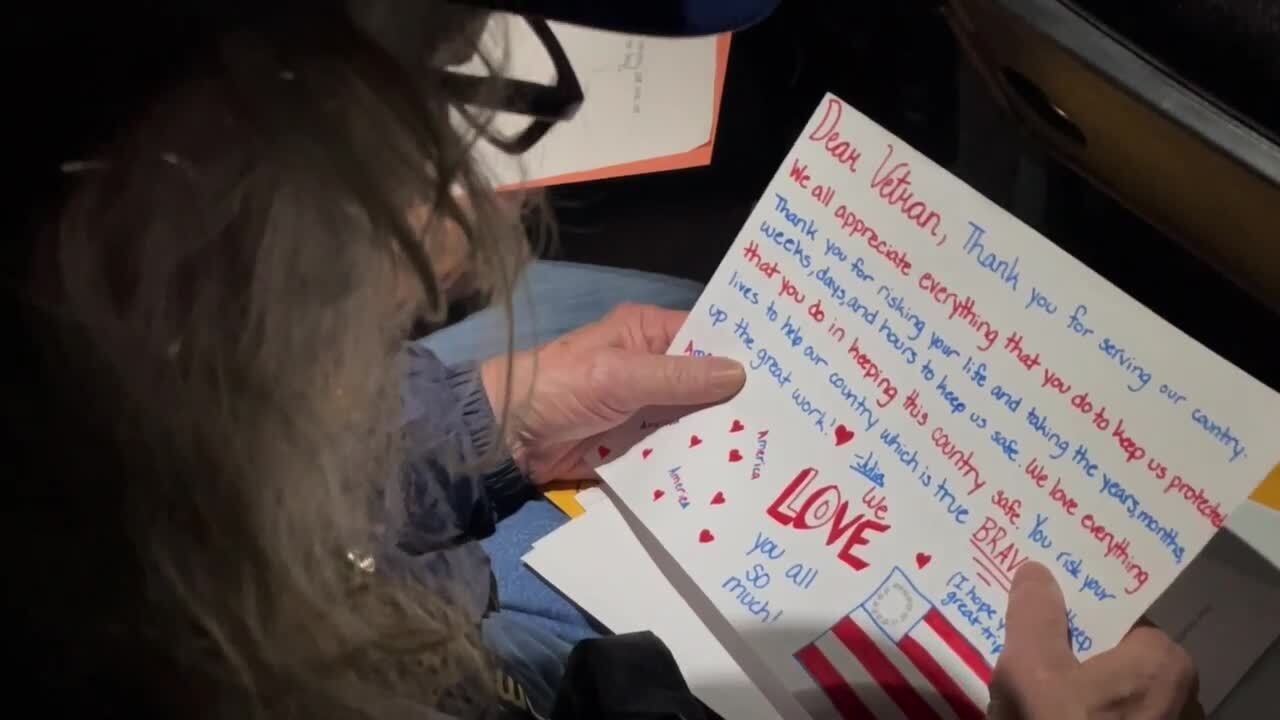 Dear Vetran, Thank you for serving our country.
We all appreciate everything that you do to keep us protected
Thank you for risking your life and taking the years, months,
weeks, days, and hours to keep us safe. We love everything
that you do in keeping this country safe. You risk your
lives to help our country which is true BRAV
up the great work! keep
-Jules
(I hope
great trip
We
LOVE
you all
so
much!
America
America